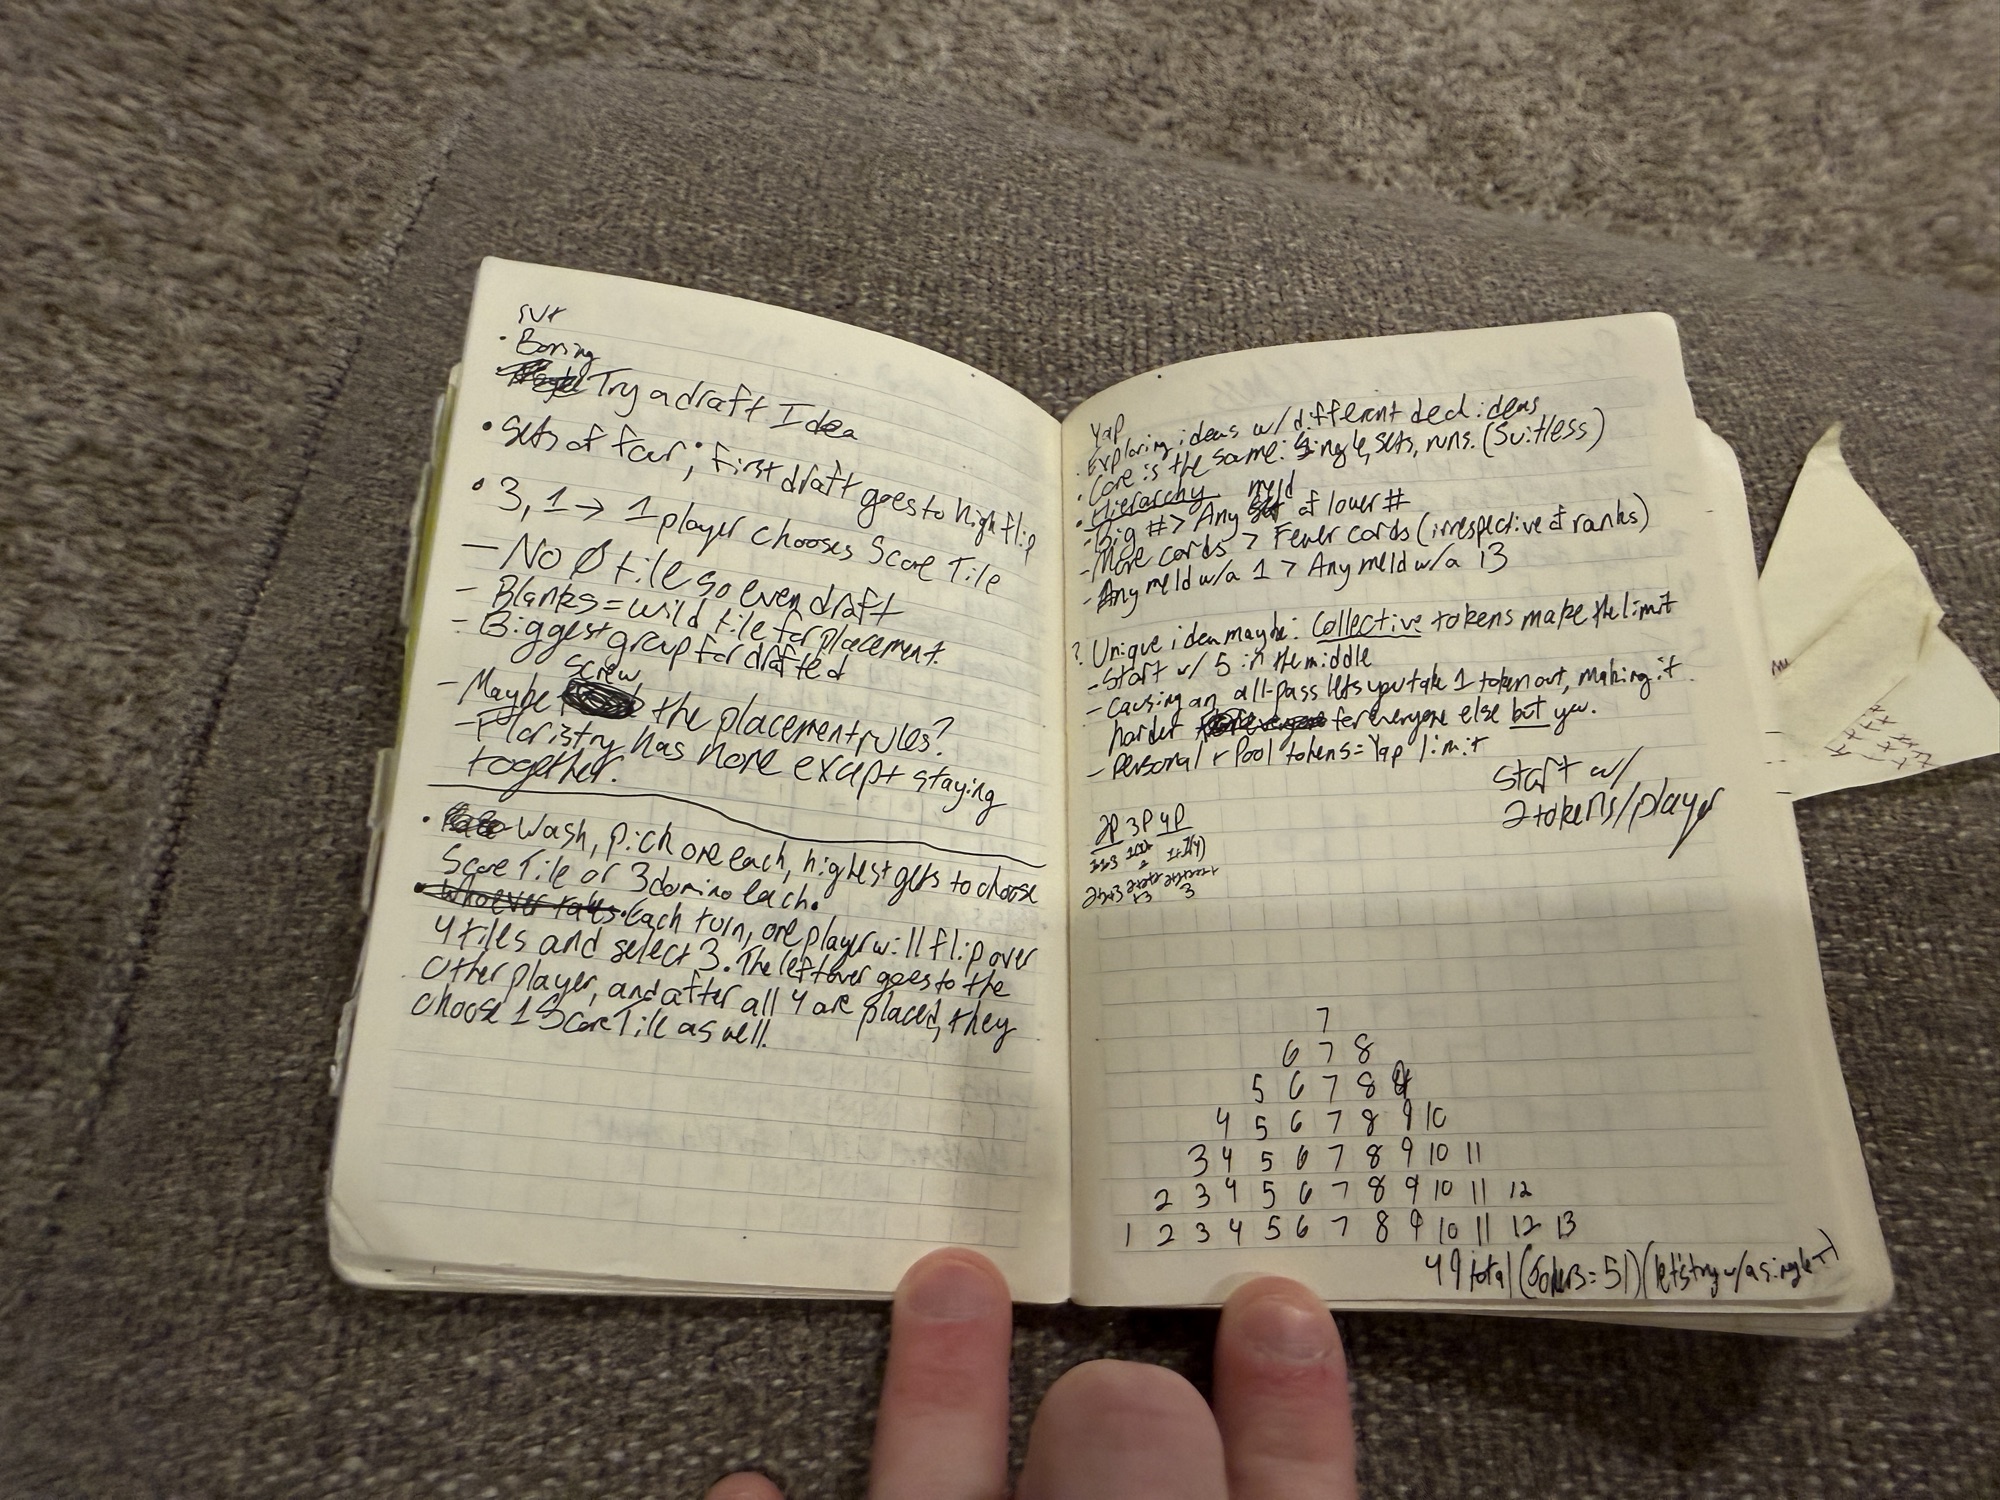 • Boring
Try a draft Idea
• Sets of four; First draft goes to high flip
• 3, 1 → 1 player chooses Score Tile
– No Ø tile so even draft
– Blanks = wild tile for placement.
– Biggest group for drafted
– Maybe screw the placement rules?
– Floristry has none except staying
together.
• Wash, pick one each, highest gets to choose
Score Tile or 3 domino each.
• Whoever takes • Each turn, one player will flip over
4 tiles and select 3. The leftover goes to the
other player, and after all 4 are placed, they
choose 1 Score Tile as well.
Yap
• Exploring ideas w/ different deck ideas
• Core is the same: Single, sets, runs. (Suitless)
• Hierarchy
– Big # > Any meld of lower #
– More cards > Fewer cards (irrespective of ranks)
– Any meld w/a 1 > Any meld w/a 13
? Unique idea maybe: Collective tokens make the limit
– Start w/ 5 in the middle
– Causing an all-pass lets you take 1 token out, making it
harder for everyone else but you.
– Personal + Pool tokens = Yap limit
Start w/
2 tokens/player
2P 3P 4P
7
6 7 8
5 6 7 8 9
4 5 6 7 8 9 10
3 4 5 6 7 8 9 10 11
2 3 4 5 6 7 8 9 10 11 12
1 2 3 4 5 6 7 8 9 10 11 12 13
49 total (Jokers = 51) (let's try w/a single J)